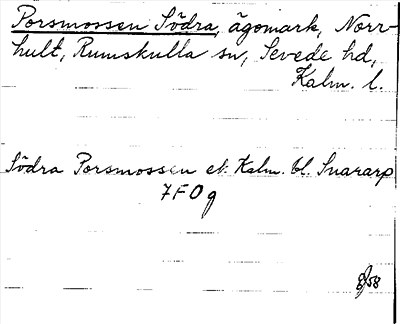 Porsmossen Södra, ägomark, Norr-
hult, Rumskulla sn, Sevede hd,
Kalm. l.
Södra Porsmossen ek. Kalm. bl. Svararp
7F0g
58